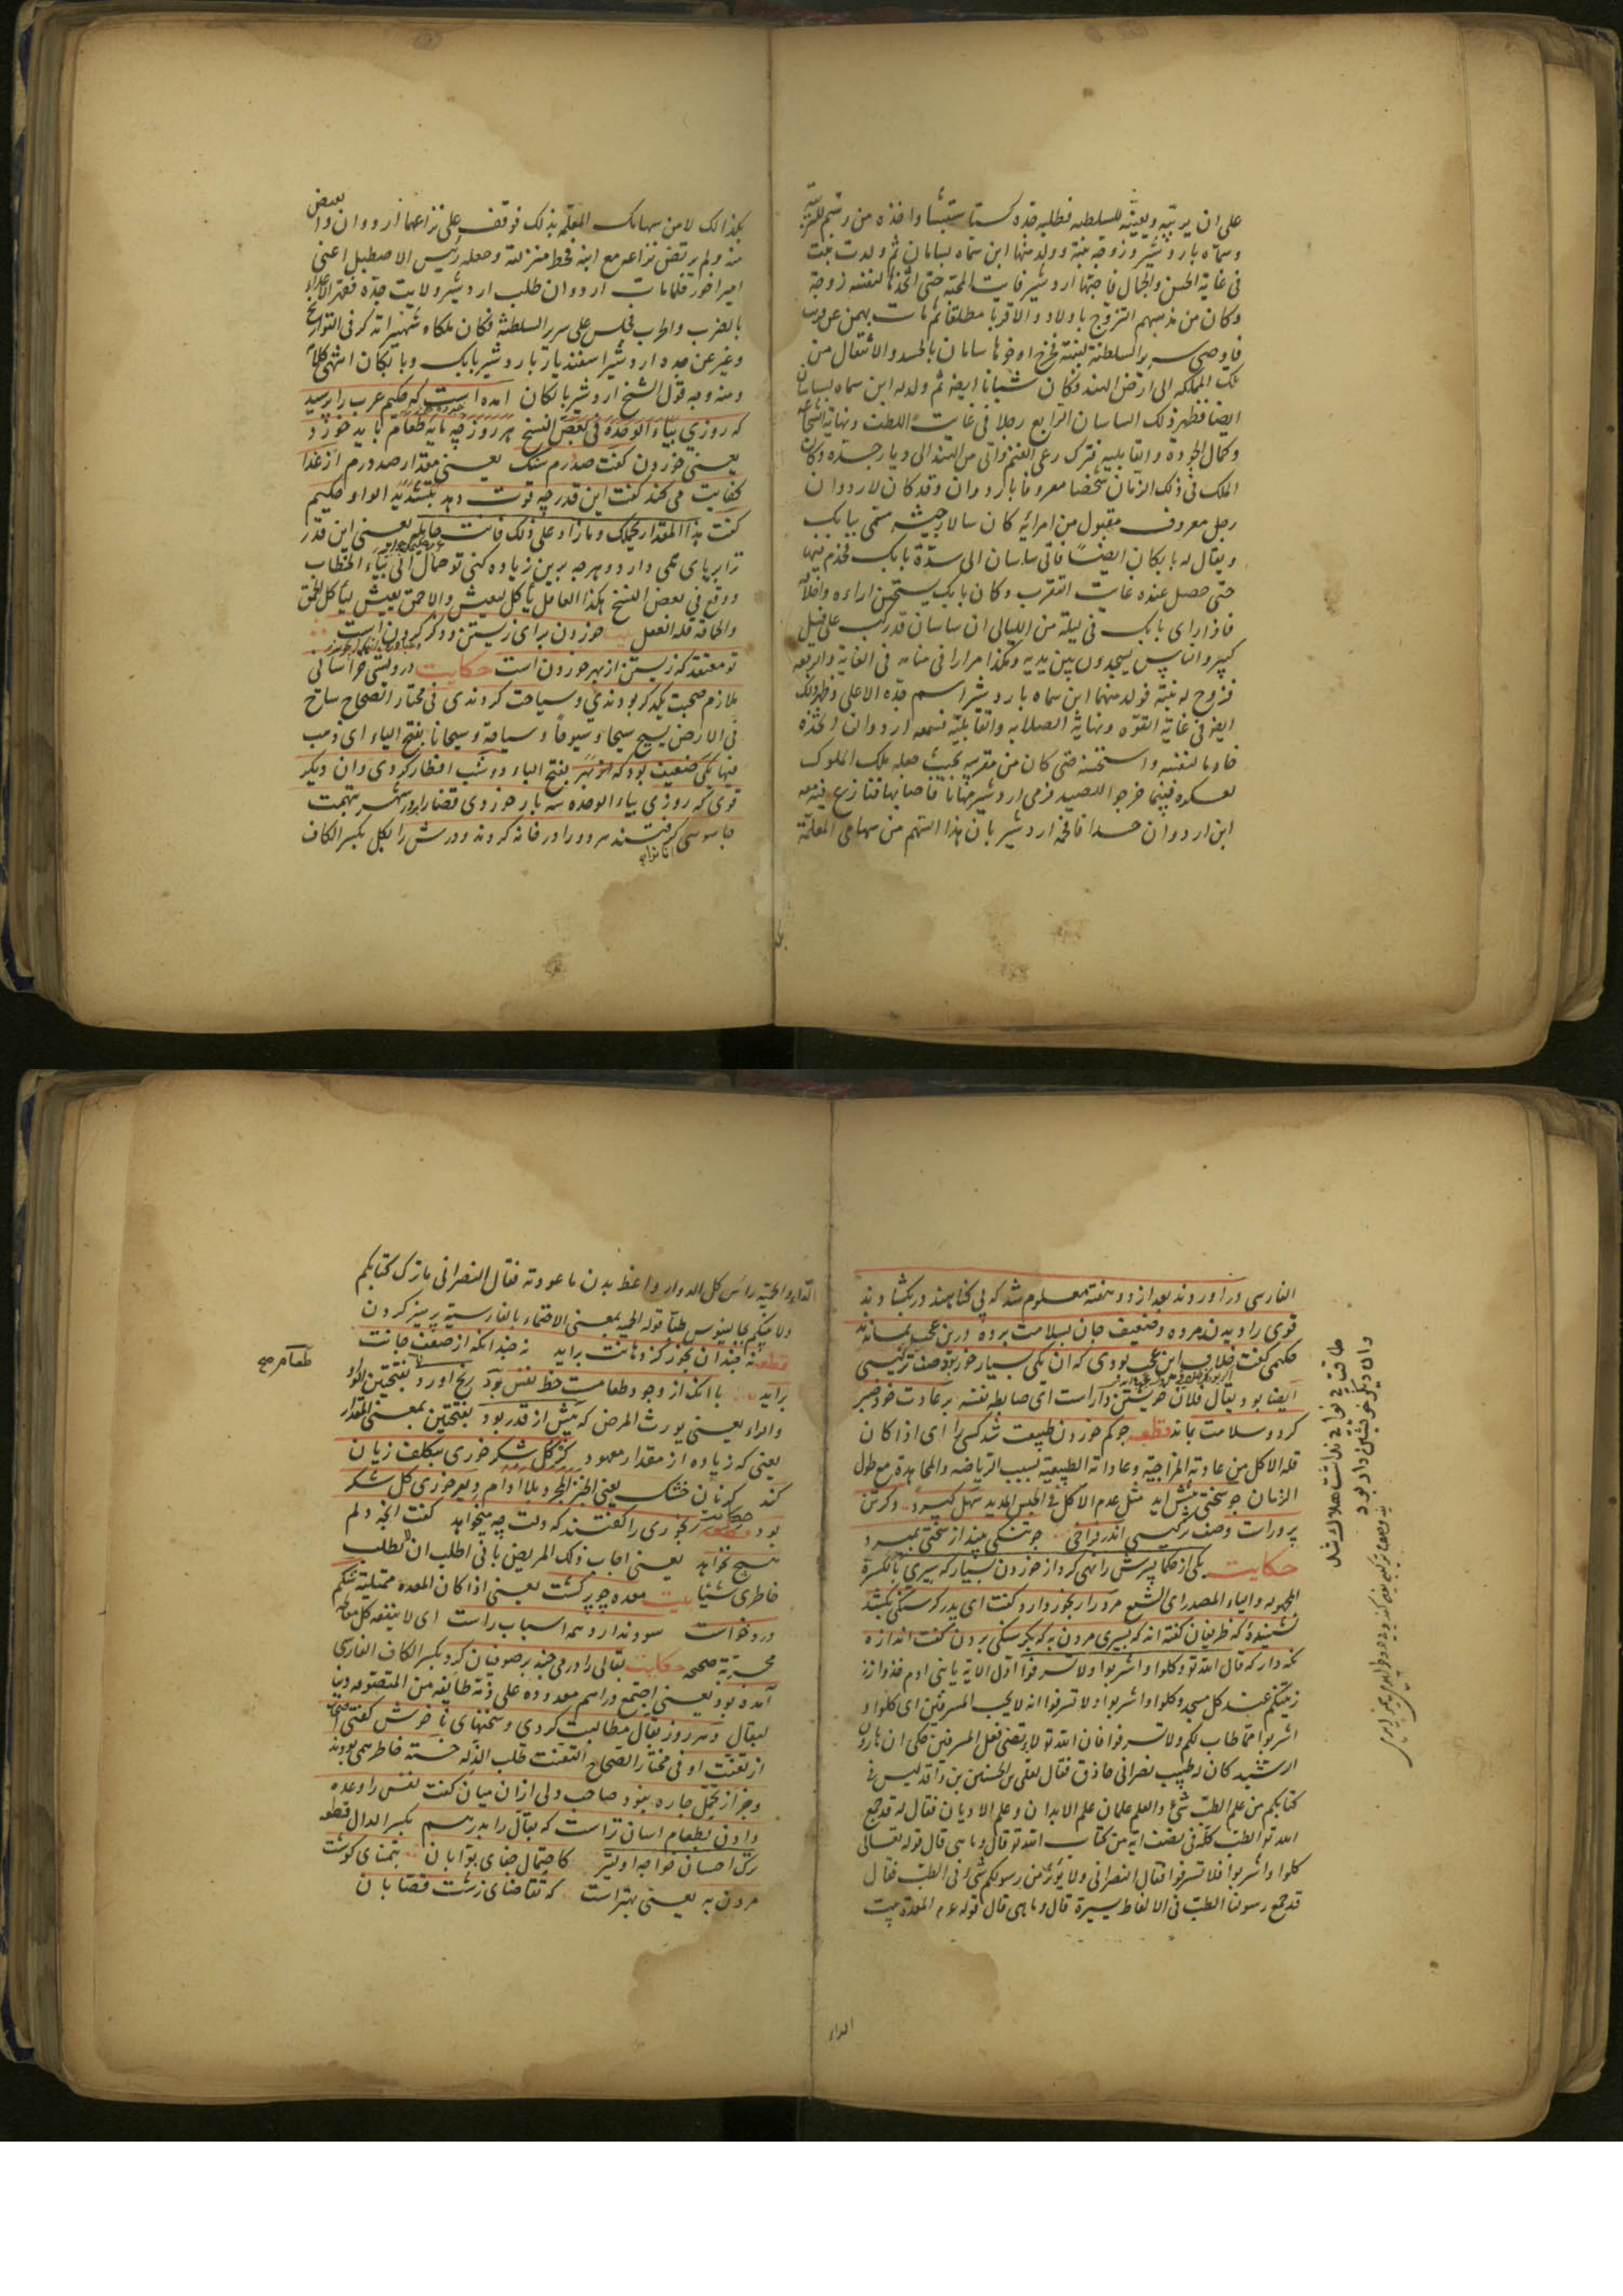 على ان يربيه ويعينه للسلطنه فطلبه جده كستاستبشا واخذه من
وسماه باردشير وزوجه بنته وولد منها ابن سماه بساسان ثم ولدت بنت
فى غاية الحسن والجمال فاحبتها اردشير غايت المحبة حتى اتخذها لنفسه زوجة
وكان من مذهبهم التزوج باولاد والاقربا مطلقا ثم مات بهمن عن قريب
فاوصى سرير السلطنة لبنته فخرج اخوها ساسان بالحسد والانتقال من
تلك المملكه الى ارض الهند فكان شبانا ايضه ثم ولد له ابن سماه بساسان
ايضا فظهر ذلك الساسان الرابع رجلا فى غايت اللطف ونهاية الشجاعه
وكمال الجوده والقابليه فترك رعى الغنم واتى من الهند الى ديار جده وكان
الملك فى ذلك الزمان شخصا معروفا باردوان وقد كان لاردوان
رجل معروف مقبول من امرائه كان سالار جيشه مسمى ببابك
ويقال له بابكان ايضا فاتى ساسان الى سدة بابك فخدم فيها
حتى حصل عنده غايت التقرب وكان بابك يستحسن اراءه وافعاله
فاذا راى بابك فى ليلة من الليالى ان ساسان قد ركب على فيل
كبير والناس يسجدون بين يديه وهكذا مرارا فى منامه فى الغاية والرابعه
فزوج له بنته فولد منهما ابن سماه باردشير اسم جده الاعلى وظهر ذلك
ايضه فى غاية القوه ونهاية الصلابه والقابلية فسمعه اردوان واتخذه
خادما لنفسه واستحسنه حتى كان من مقربيه بحيث جعله ملك الملوك
لعسكره فبينما خرجوا للصيد فرمى اردشير فاصابها فتنازع فيه معه
ابن اردوان حسدا فاخذ اردشير بان هذا السهم من سهامى المعلمة
بعض
كذا لك لا من سهامك المعلمه بذلك فوقف على نزاعهما اردوان
منه ولم يرتض نزاعه مع ابنه فحط منزلته وجعله رئيس الاصطبل اعنى
اميراخور فلما مات اردوان طلب اردشير ولايت جده فقهر الاعداء
بالضرب والحرب فجلس على سرير السلطنة فكان ملكا وشهنير انه كر فى التواريخ
وغير عن جده اردشير اسفنديار باردشير بابك وبابكان انتهى كلام
ومنه وجه قول الشيخ اردشير بابكان امده است كه حكيم عرب را پرسيد
كه روزي بياء الوحدة فى بعض النسخ هر روز چه مايه طعام بايد خورد
يعنى خوردن كفت صد درم سنك يعنى مقدار صد درم از غذا
كفايت مى كند كفت اين قدر چه قوت دهد بتشديد الواو حكيم
كفت هذا المقدار يحملك وما زاد على ذلك فانت حامله يعنى اين قدر
ترا برپاى همى دارد وهرچه برين زياده كنى تو حمال انى بياء الخطاب
ووقع فى بعض النسخ هكذا العاقل ياكل ليعيش والاحمق يعيش ليأكل للحمق
والحاقه قله العقل بيت خوردن براى زيستن وذكر كردن است
تو معتقد كه زيستن از بهر خوردن است حكايت دو درويش خراسانى
ملازم صحبت يكدكر بودندي وسياحت كردندى فى مختار الصحاح ساح
فى الارض يسيح سيحا وسيوحا وسياحة وسيحانا بفتح الياء اى ذهب
فيها يكى ضعيف بود كه بفتح الباء دو شب افطار كردى وان ديكر
قوى كه روزى بياء الوحده سه بار خوردى قضارا بر در شهر بتهمت
جاسوسى كرفتند هر دو را در خانه كردند ودرش را بكل بكسر الكاف
الفارسى در اوردند بعد از دو هفته معلوم شد كه بى كناهند در بكشادند
قوى را ديدند مرده وضعيف جان بسلامت برده درين عجب بماندند
حكيمى كفت خلاف اين عجب بودى كه ان يكى بسيار خور بود وصف تركيبى
ايضا بود يقال فلان خويشتن دار است اى ضابط نفسه بر عادت خود صبر
كرد وسلامت بماند قطعه چو كم خوردن طبيعت شد كسى را اى اذا كان
قله الاكل من عادته المزاجية وعاداته الطبيعية بسبب الرياضه والمجاهدة مع طول
الزمان چو سختى پيش ايد مثل عدم الاكل فى الحبس المديد سهل كيرد وكر تن
پرورست وصف تركيبى اندر فراخى چو تنكى بيند از سختى بميرد
حكايت يكى از حكما پسرش را نهى كرد از خوردن بسيار كه سيرى بالكسرة
المجهوله والياء المصدر اى الشبع مرد را رنجور دارد كفت اى پدر كرسنكى بكشد
نشنيدۀ كه ظريفان كفته اند كه بسيرى مردن به كه بكرسنكى بردن كفت اندازه
نكه دار كه قال الله تو وكلوا واشربوا ولا تسرفوا اول الاية يا بنى ادم خذوا
زينتكم عند كل مسجد وكلوا واشربوا ولا تسرفوا انه لا يحب المسرفين اى كلوا و
اشربوا مما طاب لكم ولا تسرفوا فان الله تو لا يرتضى فعل المسرفين حكى ان هارون
الرشيد كان له طبيب نصرانى حاذق فقال لعلى بن الحسين بن واقد ليس فى
كتابكم من علم الطب شئ والعلم علمان علم الابدان وعلم الاديان فقال له قد جمع
الله تو الطب كله فى نصف اية من كتاب الله تو قال وما هى قال قوله تعالى
كلوا واشربوا فلا تسرفوا فقال النصرانى ولا يؤثر من رسولكم شئ فى الطب فقال
قد جمع رسولنا الطب فى الالفاظ يسيرة قال وما هى قال قوله عم المعدة بيت
طاقت بى نوايى نداشت هلاك شد
وان ديكر خويشتن دار بود
الداء
الداء والحمية رأس كل الدواء واعط بدن ما عودته فقال النصرانى ما ترك كتابكم
ولا نبيكم لجالينوس طبا قوله الحميه بمعنى الاحتماء بالفارسية پرهيز كردن
قطعه نه چندان بخور كز دهانت برايد نه چندانكه از ضعف جانت
برايد با انكه از وجود طعامست حظ نفس بود رنج اورد بفتحتين
والراء يعنى يورث المرض كه بيش از قدر بود بفتحتين بمعنى المقدار
يعنى كه زياده از مقدار معهود كر كلشكر خورى بتكلف زيان
كند كر نان خشك يعنى الخبز المجرد بلا ادام دير خورى كلشكر
بود حكايت رنجورى را كفتند كه دلت چه ميخواهد كفت انچه دلم
هيچ نخواهد يعنى اجاب ذلك المريض بانى اطلب ان لا يطلب
خاطرى شيئا بيت معده چو پر كشت يعنى اذا كان المعده ممتلية شكم
درد خواست سود ندارد همه اسباب راست اى لا ينفعه كل معالجه
مجربة صحيحه حكايت بقالى را درمى چند بر صوفيان كرد بكسر الكاف الفارسى
آمده بود يعنى اجتمع دراهم معدوده على ذمة طائفه من المتصوفه دينا
لبقال وهر روز بقال مطالبت كردى وسخنهاى ناخوش كفتى
از تعنت او فى مختار الصحاح التعنت طلب الذلة خسته خاطر همى بودند
وجز از تحمل چاره نبود صاحب دلى ازان ميان كفت نفس را وعده
دادن بطعام اسان تراست كه بقال را بدرهم بكسر الدال قطعه
ترك احسان خواجه اوليتر كاحتمال جفاى بوابان بتمناى كوشت
مردن به يعنى بهتر است كه تقاضاى زشت قصابان
طعام صح